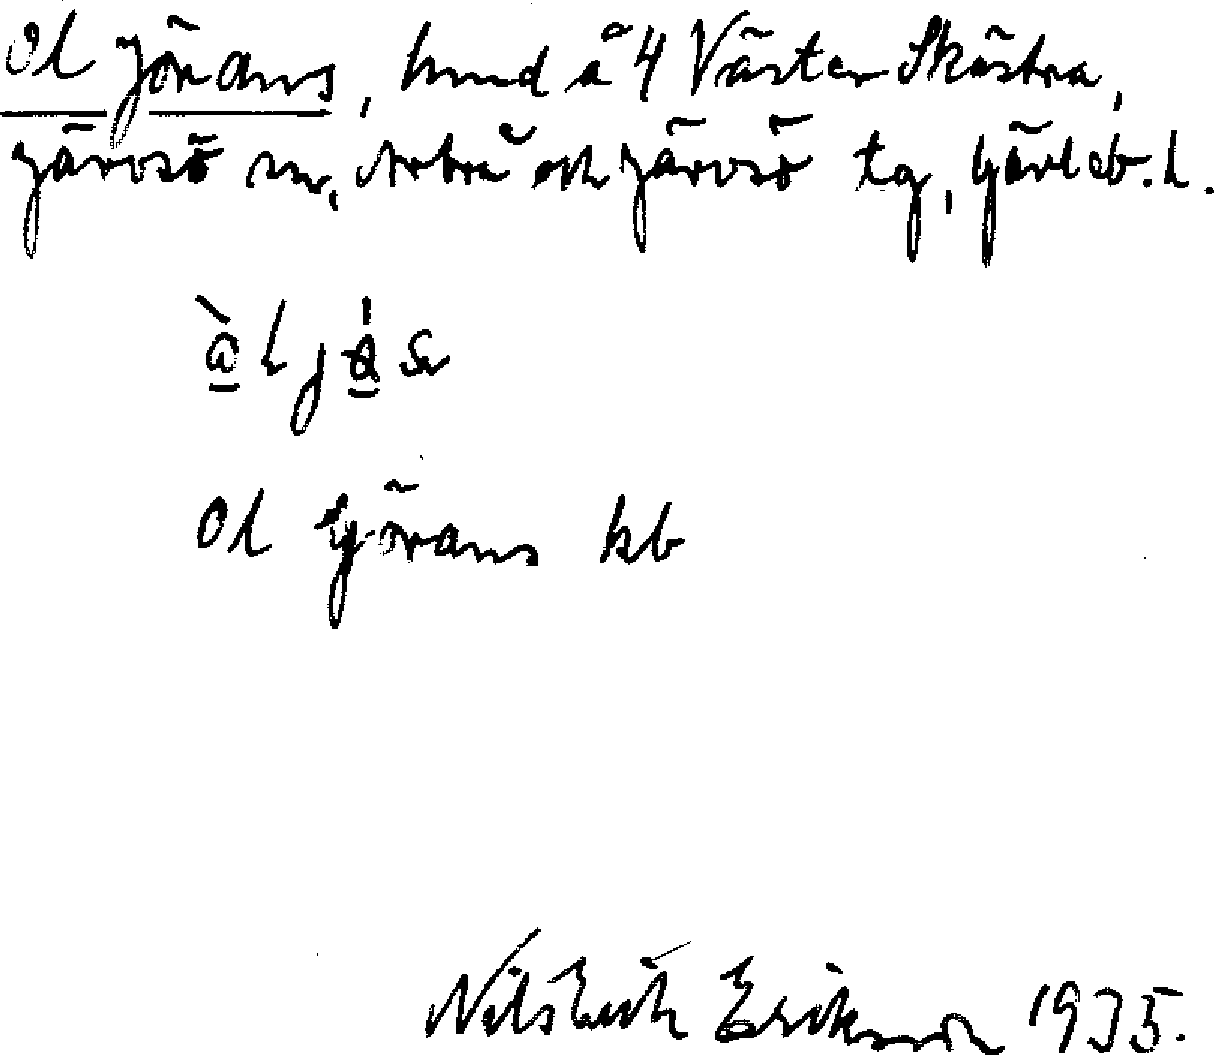 Ol Jörans, hmd å 4 Väster Skästra,
Järvsö sn, Arbrå och Järvsö tg, Gävleb. l.
Ol Görans kb
Nils Erik Eriksson 1935.